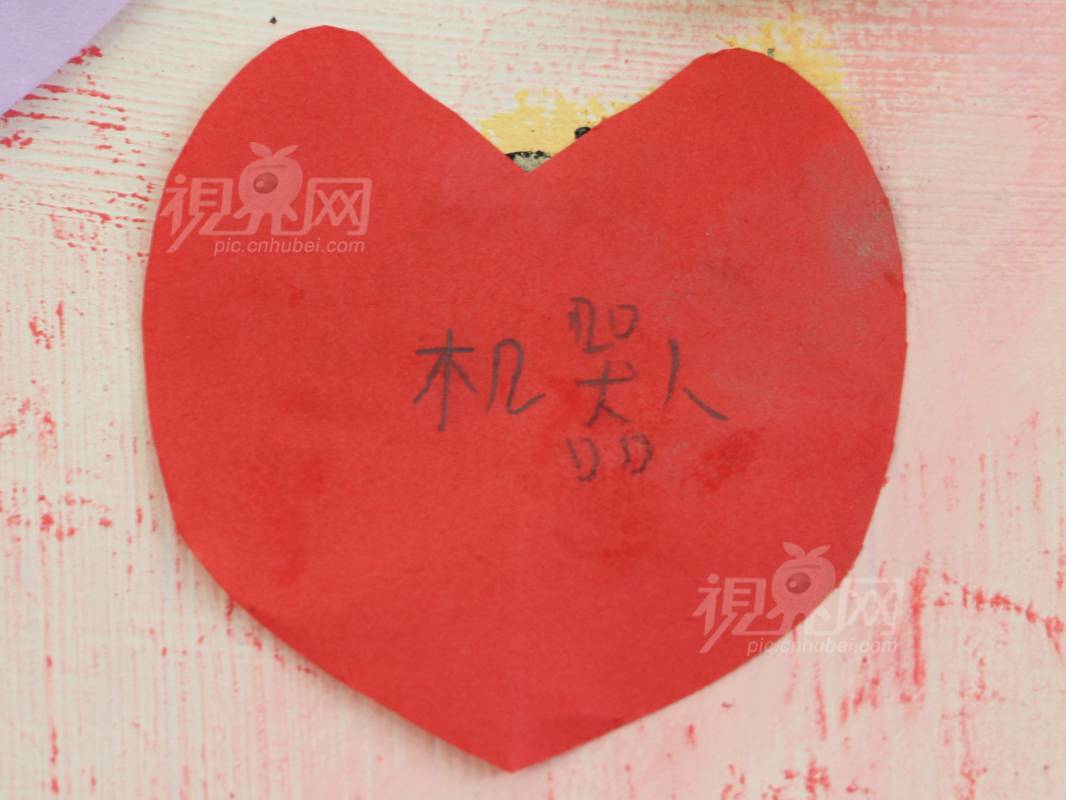 視界网
pic.cnhubei.com
机器人
視界网
pic.cnhubei.com